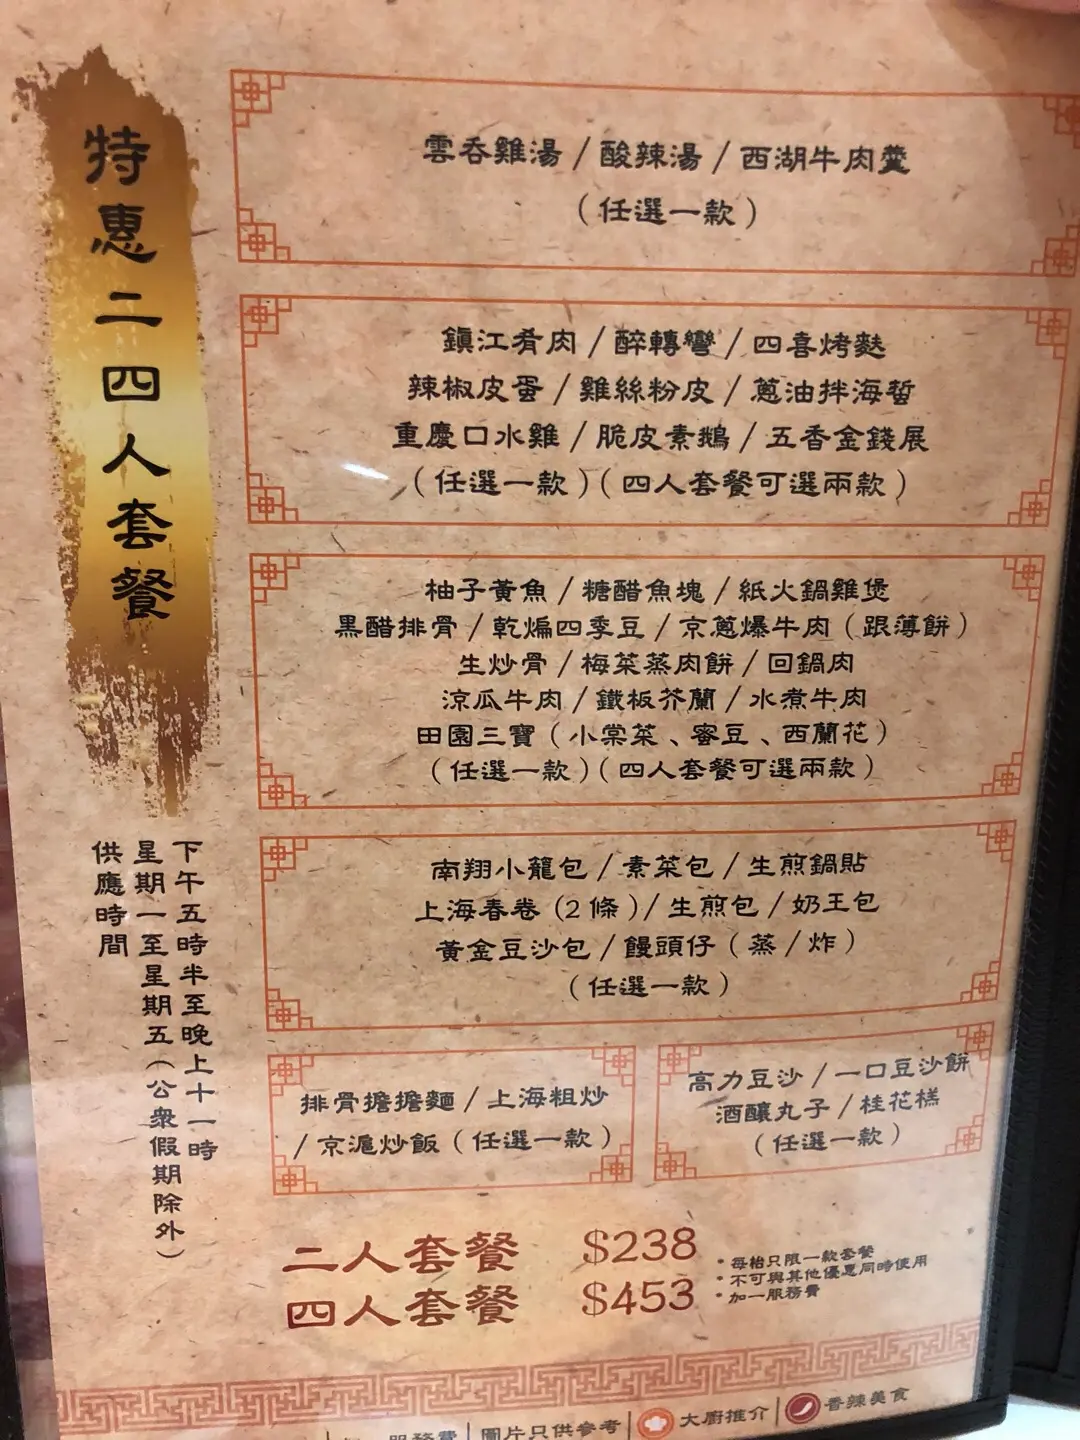 特惠二四人套餐
下午五時半至晚上十一時
星期一至星期五(公衆假期除外)
供應時間
雲吞雞湯/酸辣湯/西湖牛肉羹
(任選一款)
鎮江肴肉/醉轉彎/四喜烤麩
辣椒皮蛋/雞絲粉皮/蔥油拌海蜇
重慶口水雞/脆皮素鵝/五香金錢展
(任選一款)(四人套餐可選兩款)
柚子黃魚/糖醋魚塊/紙火鍋雞煲
黑醋排骨/乾煸四季豆/京蔥爆牛肉(跟薄餅)
生炒骨/梅菜蒸肉餅/回鍋肉
涼瓜牛肉/鐵板芥蘭/水煮牛肉
田園三寶(小棠菜、蜜豆、西蘭花)
(任選一款)(四人套餐可選兩款)
南翔小籠包/素菜包/生煎鍋貼
上海春卷(2條)/生煎包/奶王包
黃金豆沙包/饅頭仔(蒸/炸)
(任選一款)
排骨擔擔麵/上海粗炒
/京滬炒飯(任選一款)
高力豆沙/一口豆沙餅
酒釀丸子/桂花糕
(任選一款)
二人套餐 $238
四人套餐 $453
•每枱只限一款套餐
•不可與其他優惠同時使用
•加一服務費
服務費|圖片只供參考|大廚推介|香辣美食